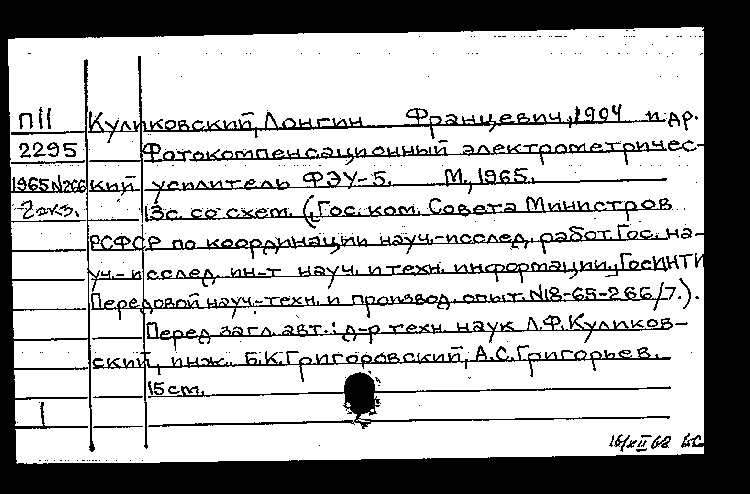 П11 Куликовский, Лонгин Францевич, 1904 и др.
2295 Фотокомпенсационный электрометричес-
1965 N266 кий усилитель ФЭУ-5. М., 1965.
2 экз. 13с. со схем. (Гос. ком. Совета Министров
РСФСР по координации науч.-исслед. работ. Гос. на-
уч.-исслед. ин-т науч. и техн. информации, ГОСИНТИ
Передовой науч.-техн. и производ. опыт. N18-65-266/7.).
Перед загл. авт.: д-р техн. наук Л.Ф. Куликов-
ский, инж. Б.К. Григоровский, А.С. Григорьев.
15 cm.
1
16/XII 68